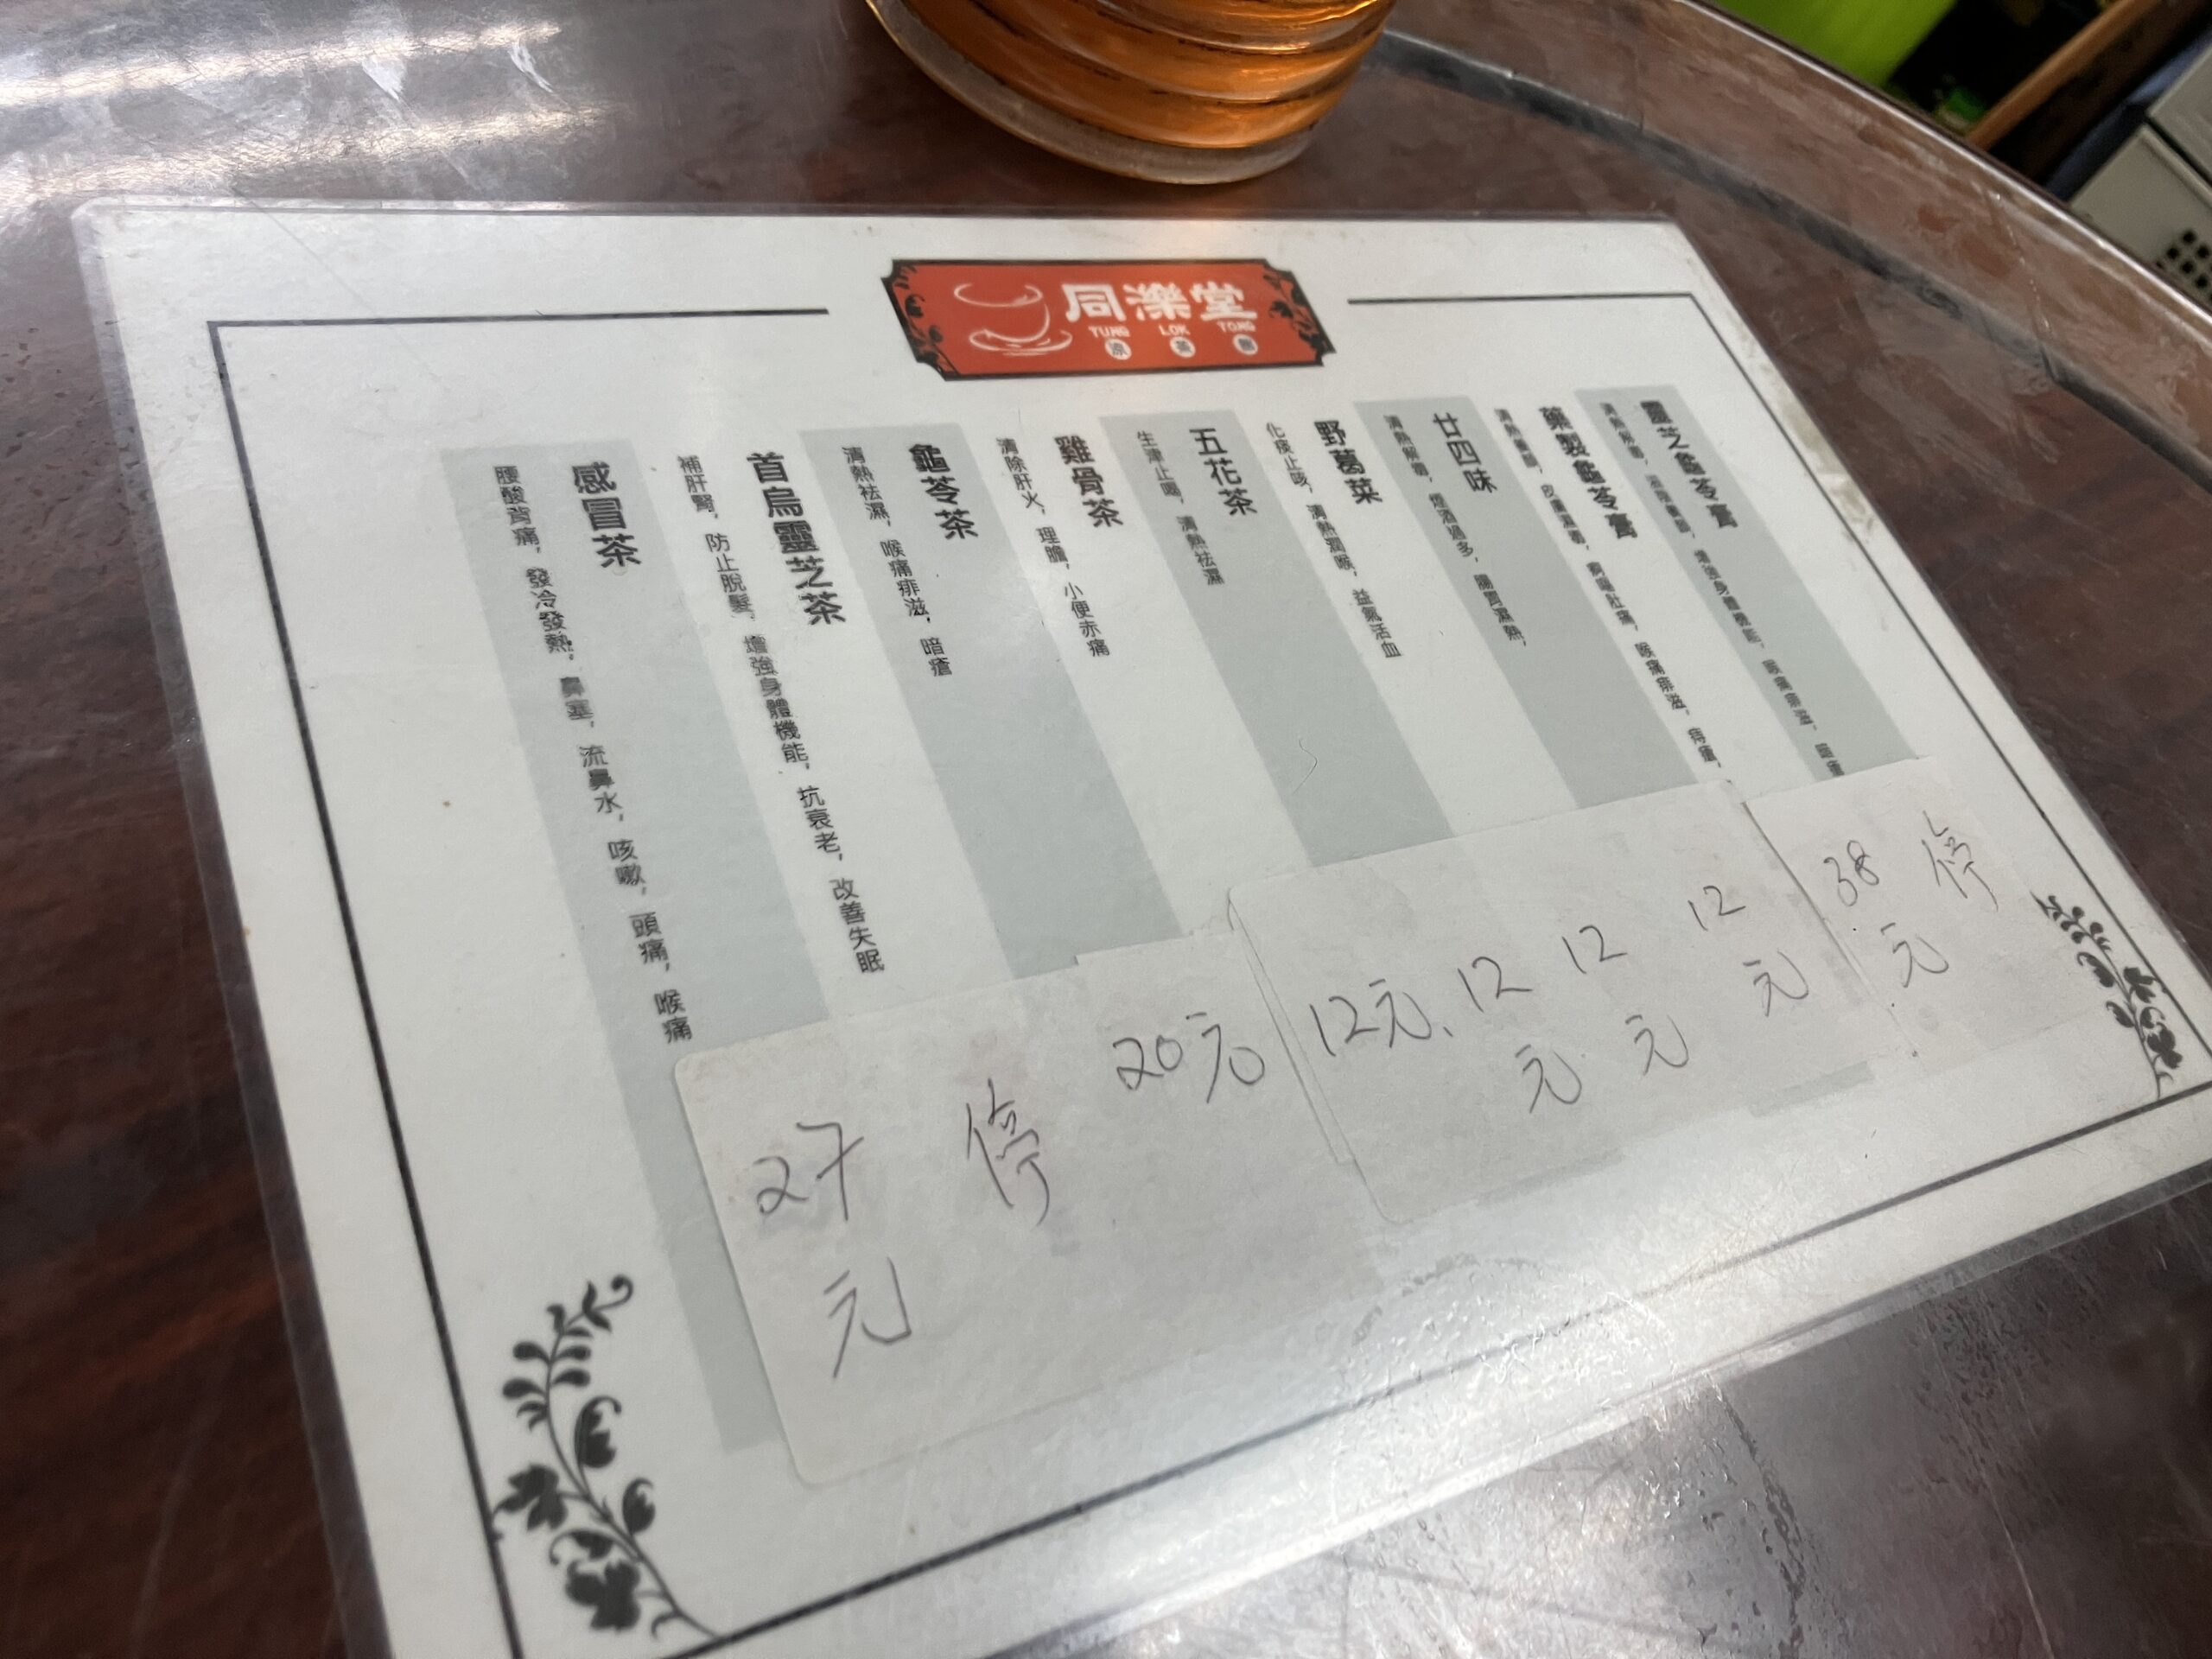 同濼堂
TUNG LOK TONG
涼茶
靈芝龜苓膏
清熱解毒, 滋陰養顏, 增強身體機能, 喉痛痱滋, 暗瘡
停
藥製龜苓膏
清熱養顏, 皮膚濕毒, 肚痛, 喉痛痱滋, 痔瘡,
38元
廿四味
清熱解毒, 煙酒過多, 腸胃濕熱,
12元
野葛菜
化痰止咳, 清熱潤喉, 益氣活血
12元
五花茶
生津止喝, 清熱祛濕
12元
雞骨茶
清除肝火, 理膽, 小便赤痛
12元
龜苓茶
清熱祛濕, 喉痛痱滋, 暗瘡
20元
首烏靈芝茶
補肝腎, 防止脫髮, 增強身體機能, 抗衰老, 改善失眠
停
感冒茶
腰酸背痛, 發冷發熱, 鼻塞, 流鼻水, 咳嗽, 頭痛, 喉痛
27元